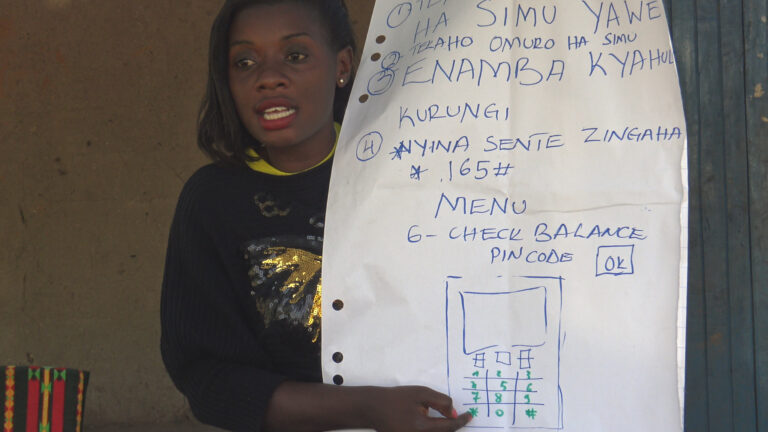 ① TE
HA SIMU YAWE
② TELAHO OMURO HA SIMU
③ ENAMBA KYAHUL
KURUNGI
④ *NYINA SENTE ZINGAHA
* .165#
MENU
6- CHECK BALANCE
PINCODE OK
1 2 3
4 5 6
7 8 9
* 0 #